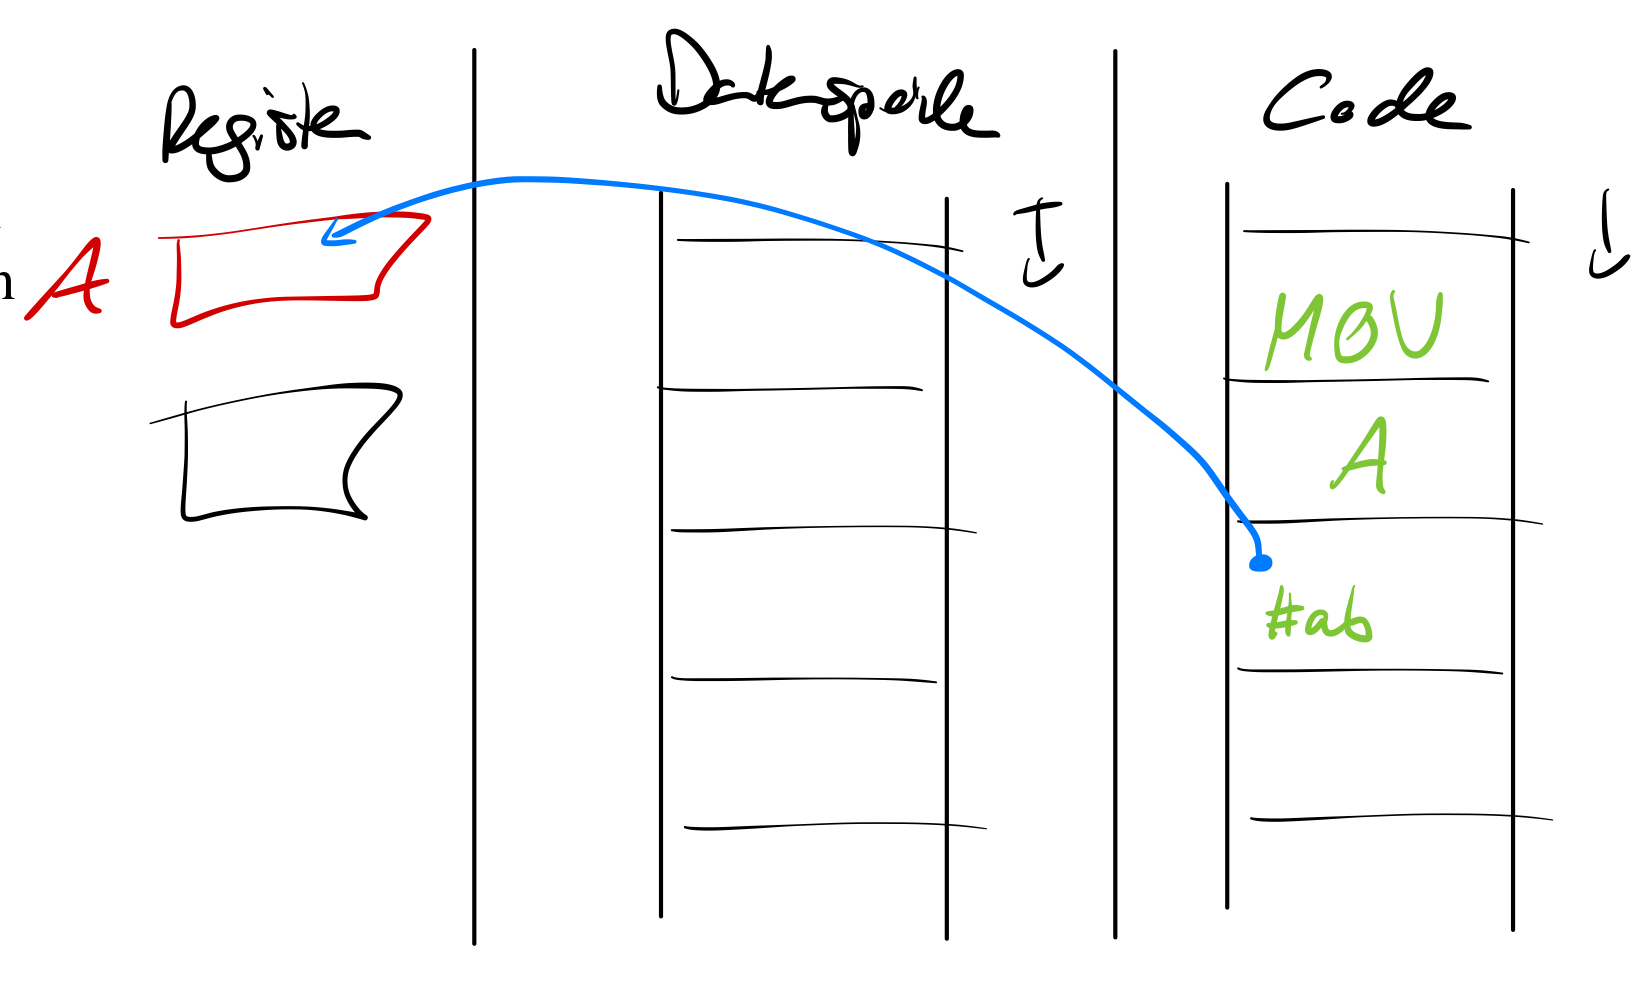 Register
Datenspeicher
Code
A
MOV
A
#ab